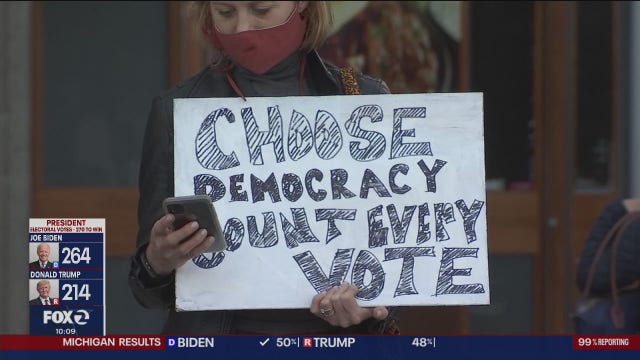 CHOOSE
DEMOCRACY
COUNT EVERY
VOTE
PRESIDENT
ELECTORAL VOTES - 270 TO WIN
JOE BIDEN
264
D
DONALD TRUMP
214
R
FOX 2
10:09
MICHIGAN RESULTS D BIDEN ✓ 50% R TRUMP 48% 99% REPORTING